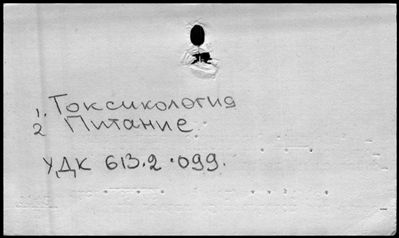 1. Токсикология
2 Питание
УДК 613.2.099.